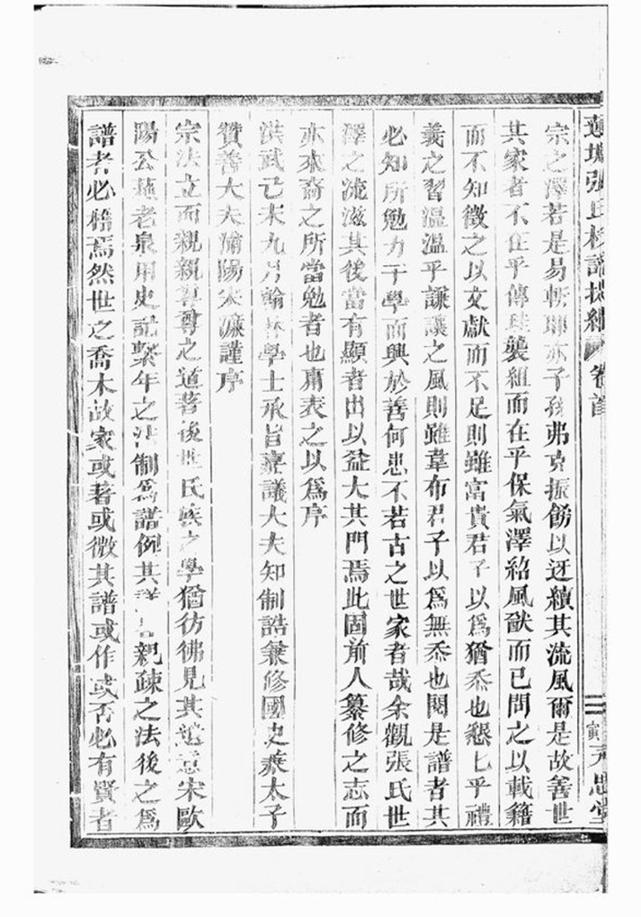 蓮塘張氏校譜抄維 卷首 二 寅 元忠堂
宗之澤若是易斬耶亦子孫弗克振飭以迓續其流風爾是故善世
其家者不在乎傳珪襲組而在乎保氣澤紹風猷而已問之以載籍
而不知徵之以文獻而不足則雖富貴君子以爲猶忝也懇乞乎禮
義之習溫溫乎謙讓之風則雖韋布君子以爲無忝也閱是譜者其
必知所勉力于學而興於善何患不若古之世家者哉余觀張氏世
澤之流滋其後當有顯者出以益大其門焉此固前人纂修之志而
亦來裔之所當勉者也庸表之以爲序
洪武己未九月翰林學士承旨嘉議大夫知制誥兼修國史兼太子
贊善大夫浦陽宋濂謹序
宗法立而親親尊尊之道著後世氏族之學猶彷彿見其遺意宋歐
陽公蘇老泉用史記繫年之法制爲譜例其詳 親疎之法後之爲
譜者必稽焉然世之喬木故家或著或微其譜或作或否必有賢者